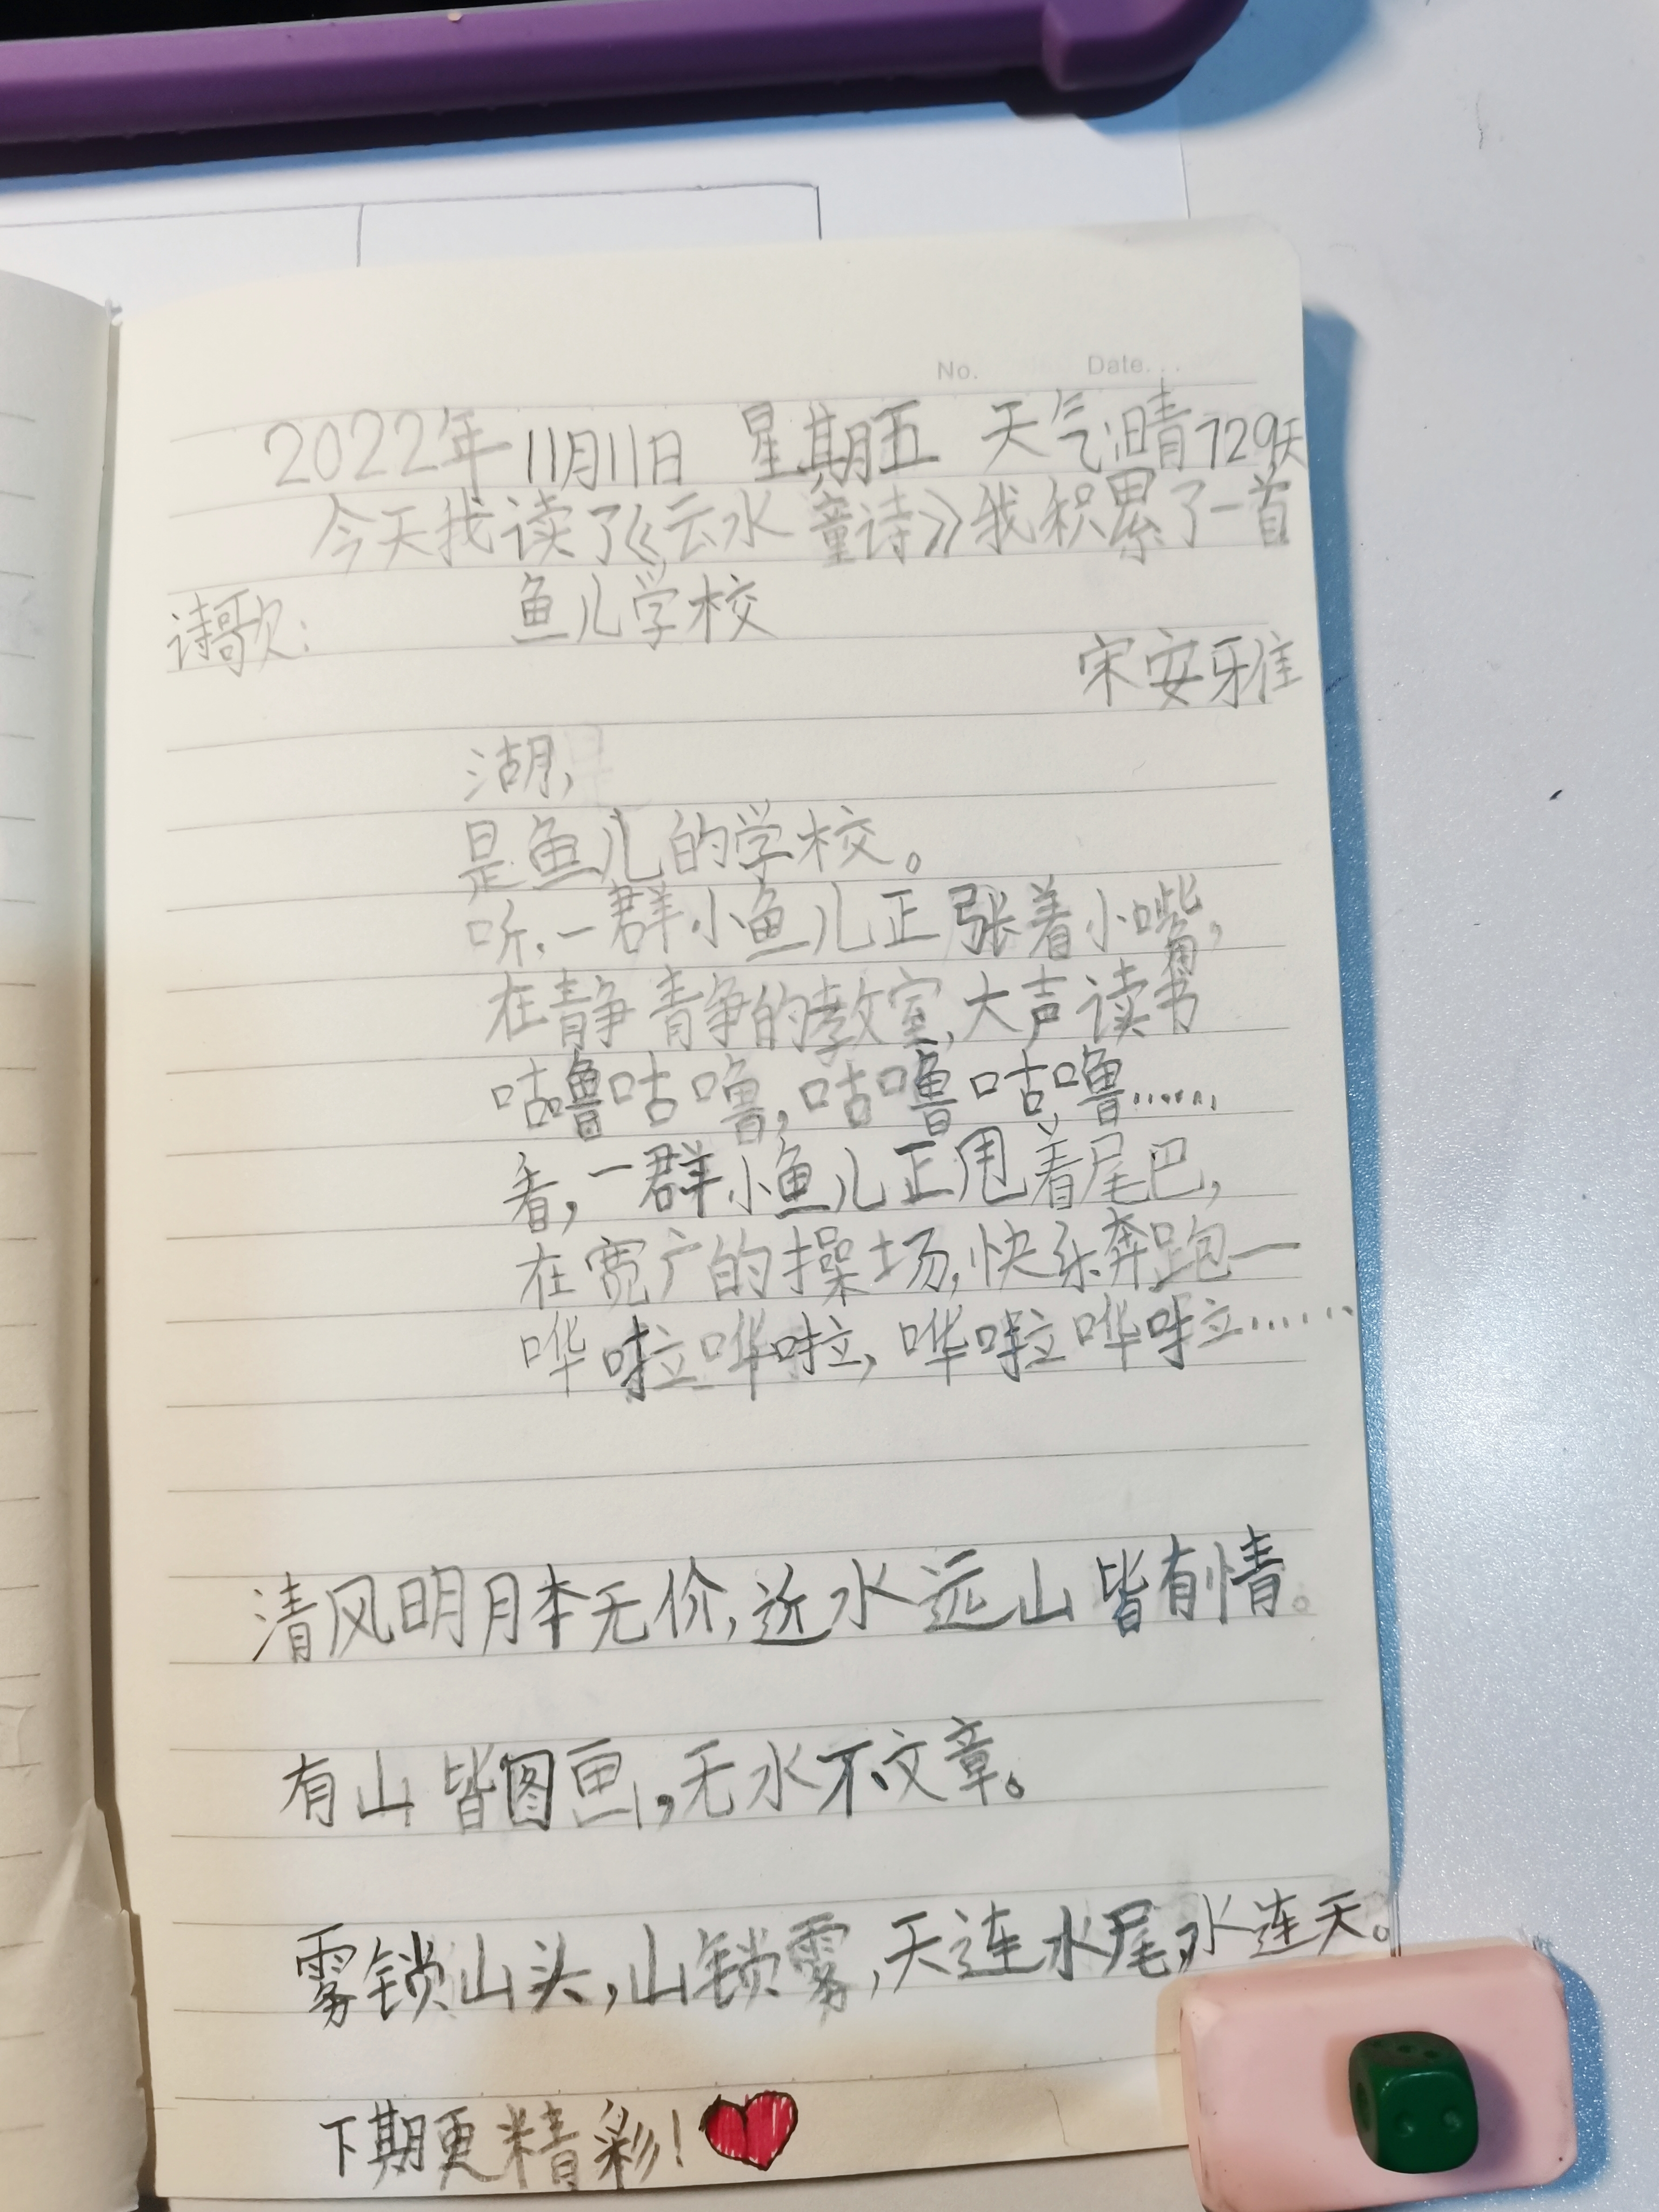 No. Date.
2022年11月11日 星期五 天气:晴729天
今天我读了《云水童诗》我积累了一首
诗歌: 鱼儿学校
宋安雅
湖,
是鱼儿的学校。
听,一群小鱼儿正张着小嘴,
在静静的教室,大声读书
咕噜咕噜,咕噜咕噜……
看,一群小鱼儿正甩着尾巴,
在宽广的操场,快乐奔跑—
哗啦哗啦,哗啦哗啦……
清风明月本无价,近水远山皆有情。
有山皆图画,无水不文章。
雾锁山头,山锁雾,天连水尾,水连天。
下期更精彩!